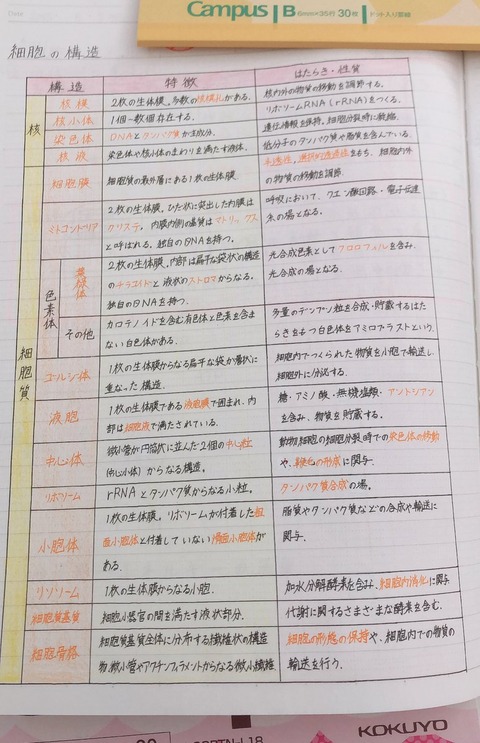 Campus B 6mm×35行 30枚 ドット入り罫線
細胞の構造
構造 特徴 はたらき・性質
核 核膜 2枚の生体膜。多数の核膜孔がある。 核内外の物質の移動を調節する。
核小体 1個~数個存在する。 リボソームRNA(rRNA)をつくる。
染色体 DNAとタンパク質が主成分。 遺伝情報を保持。細胞分裂時に凝縮。
核液 染色体や核小体のまわりを満たす液体。 低分子のタンパク質や脂質を含んでいる。
細胞質
細胞膜 細胞質の最外層にある1枚の生体膜 半透性,選択的透過性をもち、細胞内外
の物質の移動を調節。
ミトコンドリア 2枚の生体膜。ひだ状に突出した内膜は
クリステ、内膜内側の基質はマトリックス
と呼ばれる。独自のDNAを持つ。
呼吸において、クエン酸回路・電子伝達
系の場となる。
色素体
葉緑体 2枚の生体膜。内部は扁平な袋状の構造
のチラコイドと液状のストロマからなる。
独自のDNAを持つ。
光合成色素としてクロロフィルを含み、
光合成の場となる。
その他 カロテノイドを含む有色体と色素を含ま
ない白色体がある。
多量のデンプン粒を合成・貯蔵するはた
らきをもつ白色体をアミロプラストという。
ゴルジ体 1枚の生体膜からなる扁平な袋が層状に
重なった構造。
細胞内でつくられた物質を小胞で輸送し、
細胞外に分泌する。
液胞 1枚の生体膜である液胞膜で囲まれ、内
部は細胞液で満たされている。
糖・アミノ酸・無機塩類・アントシアン
を含み、物質を貯蔵する。
中心体 微小管が円筒状に並んだ2個の中心粒
(中心小体)からなる構造。
動物細胞の細胞分裂時での染色体の移動
や、鞭毛の形成に関与。
リボソーム rRNAとタンパク質からなる小粒。 タンパク質合成の場。
小胞体 1枚の生体膜。リボソームが付着した粗
面小胞体と付着していない滑面小胞体が
ある。
脂質やタンパク質などの合成や輸送に
関与。
リソソーム 1枚の生体膜からなる小胞。 加水分解酵素を含み、細胞内消化に関与
細胞質基質 細胞小器官の間を満たす液状部分。 代謝に関するさまざまな酵素を含む。
細胞骨格 細胞質基質全体に分布する繊維状の構造
物。微小管やアクチンフィラメントからなる微小繊維
細胞の形態の保持や、細胞内での物質の
輸送を行う。
KOKUYO